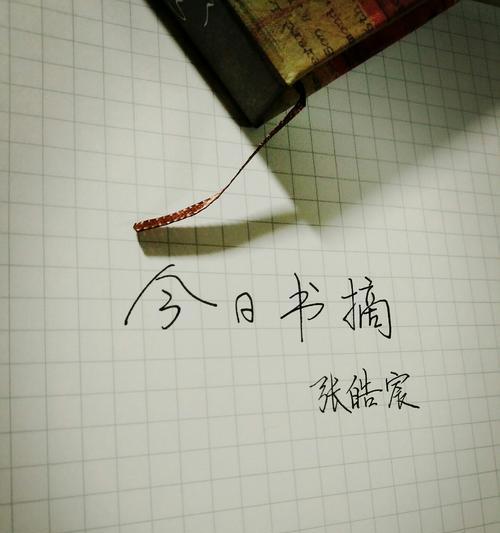 今日书摘
张皓宸